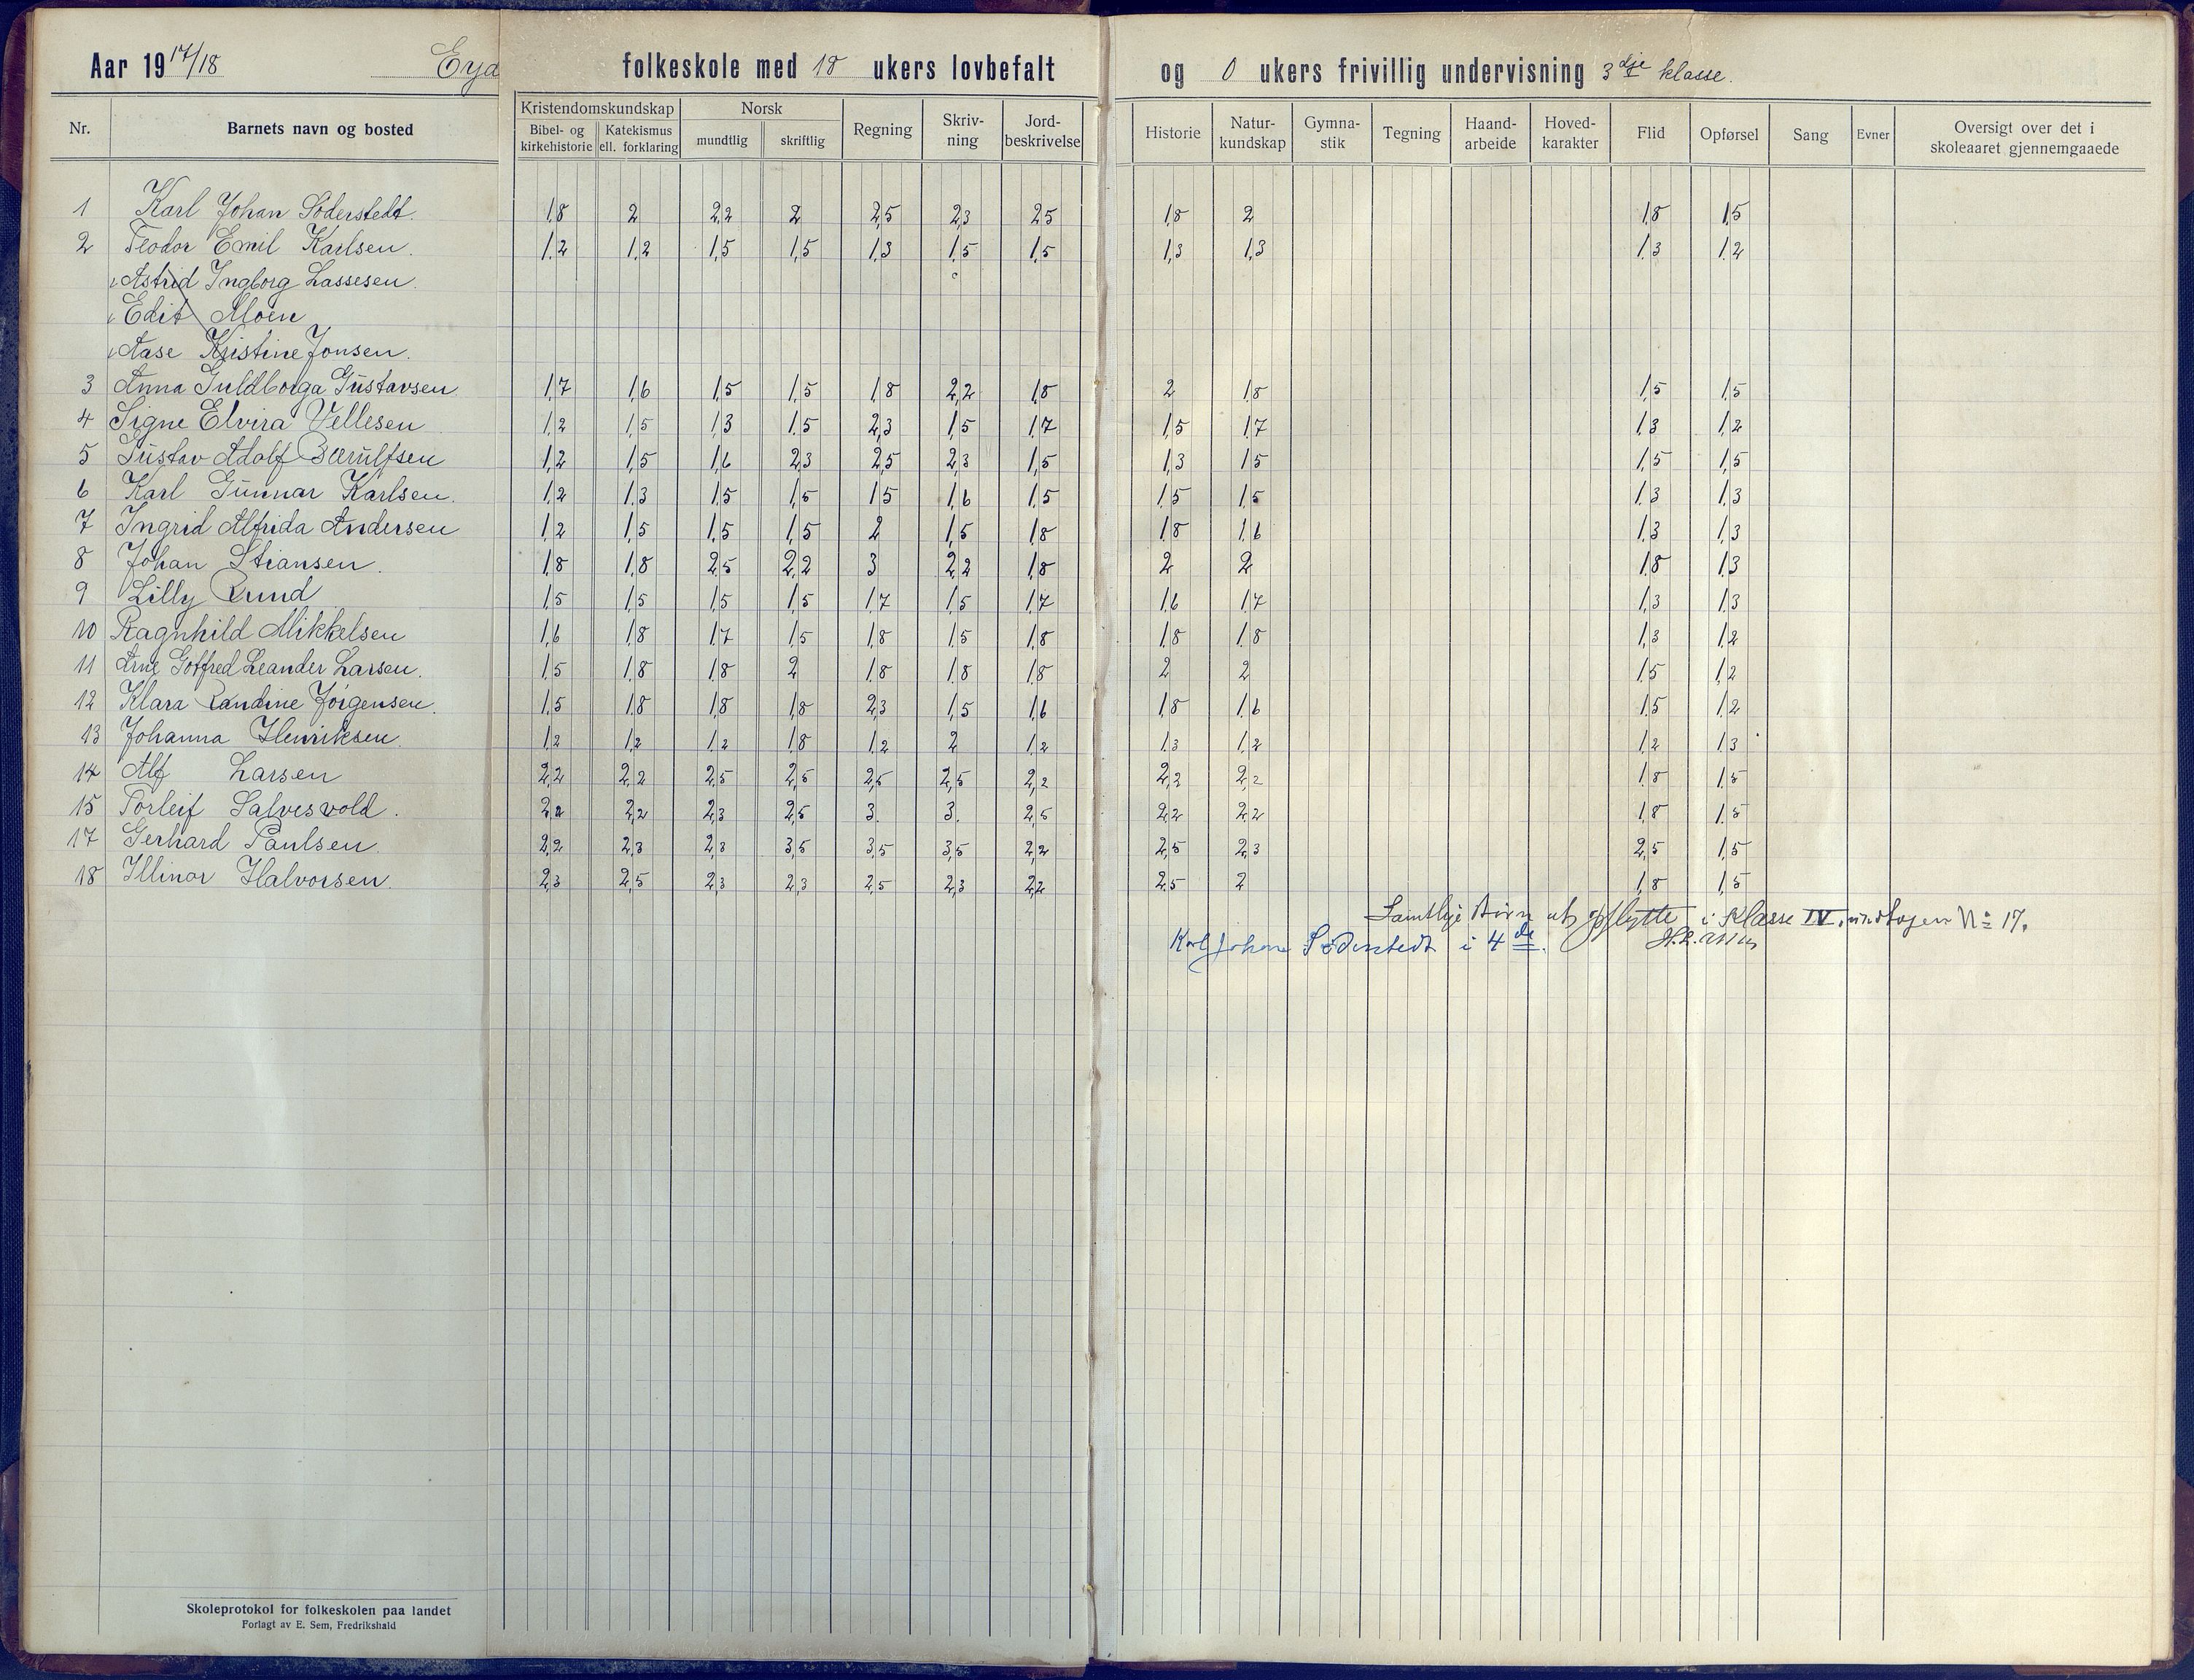 Aar 1917/18 Eyd folkeskole med 18 ukers lovbefalt og 0 ukers frivillig undervisning 3dje klasse.
Nr. Barnets navn og bosted Kristendomskundskap Norsk Regning Skriv-ning Jord-beskrivelse Historie Natur-kundskap Gymna-stik Tegning Haand-arbeide Hoved-karakter Flid Opførsel Sang Evner Oversigt over det i skoleaaret gjennemgaaede
Bibel- og kirkehistorie Katekismus ell. forklaring mundtlig skriftlig
1 Karl Johan Söderstedt. 1,8 2 2,2 2 2,5 2,3 2,5 1,8 2 1,8 1,5
2 Teodor Emil Karlsen. 1,2 1,2 1,5 1,5 1,3 1,5 1,5 1,3 1,3 1,3 1,2
Astrid Ingborg Lassesen.
Edit Moen
Aase Kristine Jonsen.
3 Anna Guldborga Gustavsen 1,7 1,6 1,5 1,5 1,8 2,2 1,8 2 1,8 1,5 1,5
4 Signe Elvira Vellesen 1,2 1,5 1,3 1,5 2,3 1,5 1,7 1,5 1,7 1,3 1,2
5 Gustav Adolf Bærulfsen 1,2 1,5 1,6 2,3 2,5 2,3 1,5 1,3 1,5 1,5 1,5
6 Karl Gunnar Karlsen. 1,2 1,3 1,5 1,5 1,5 1,6 1,5 1,5 1,5 1,3 1,3
7 Ingrid Alfrida Andersen 1,2 1,5 1,5 1,5 2 1,5 1,8 1,8 1,6 1,3 1,3
8 Johan Stiansen. 1,8 1,8 2,5 2,2 3 2,2 1,8 2 2 1,8 1,3
9 Lilly Lund 1,5 1,5 1,5 1,5 1,7 1,5 1,7 1,6 1,7 1,3 1,3
10 Ragnhild Mikkelsen 1,6 1,8 1,7 1,5 1,8 1,5 1,8 1,8 1,8 1,3 1,2
11 Arne Gotfred Leander Larsen. 1,5 1,8 1,8 2 1,8 1,8 1,8 2 2 1,5 1,2
12 Klara Randine Jørgensen. 1,5 1,8 1,8 1,8 2,3 1,5 1,6 1,8 1,6 1,5 1,2
13 Johanna Henriksen. 1,2 1,2 1,2 1,8 1,2 2 1,2 1,3 1,2 1,2 1,3
14 Alf Larsen 2,2 2,2 2,5 2,5 2,5 2,5 2,2 2,2 2,2 1,8 1,5
15 Torleif Salvesvold. 2,2 2,2 2,3 2,5 3. 3. 2,5 2,2 2,2 1,8 1,5
17 Gerhard Paulsen. 2,2 2,3 2,3 3,5 3,5 3,5 2,2 2,5 2,3 2,5 1,5
18 Illinor Halvorsen. 2,3 2,5 2,3 2,3 2,5 2,3 2,2 2,5 2 1,8 1,5
Samtlige opflytte i klasse IV, undtagen No 17.
Karl Johan Söderstedt i 4de.
Skoleprotokol for folkeskolen paa landet
Forlagt av E. Sem, Fredrikshald